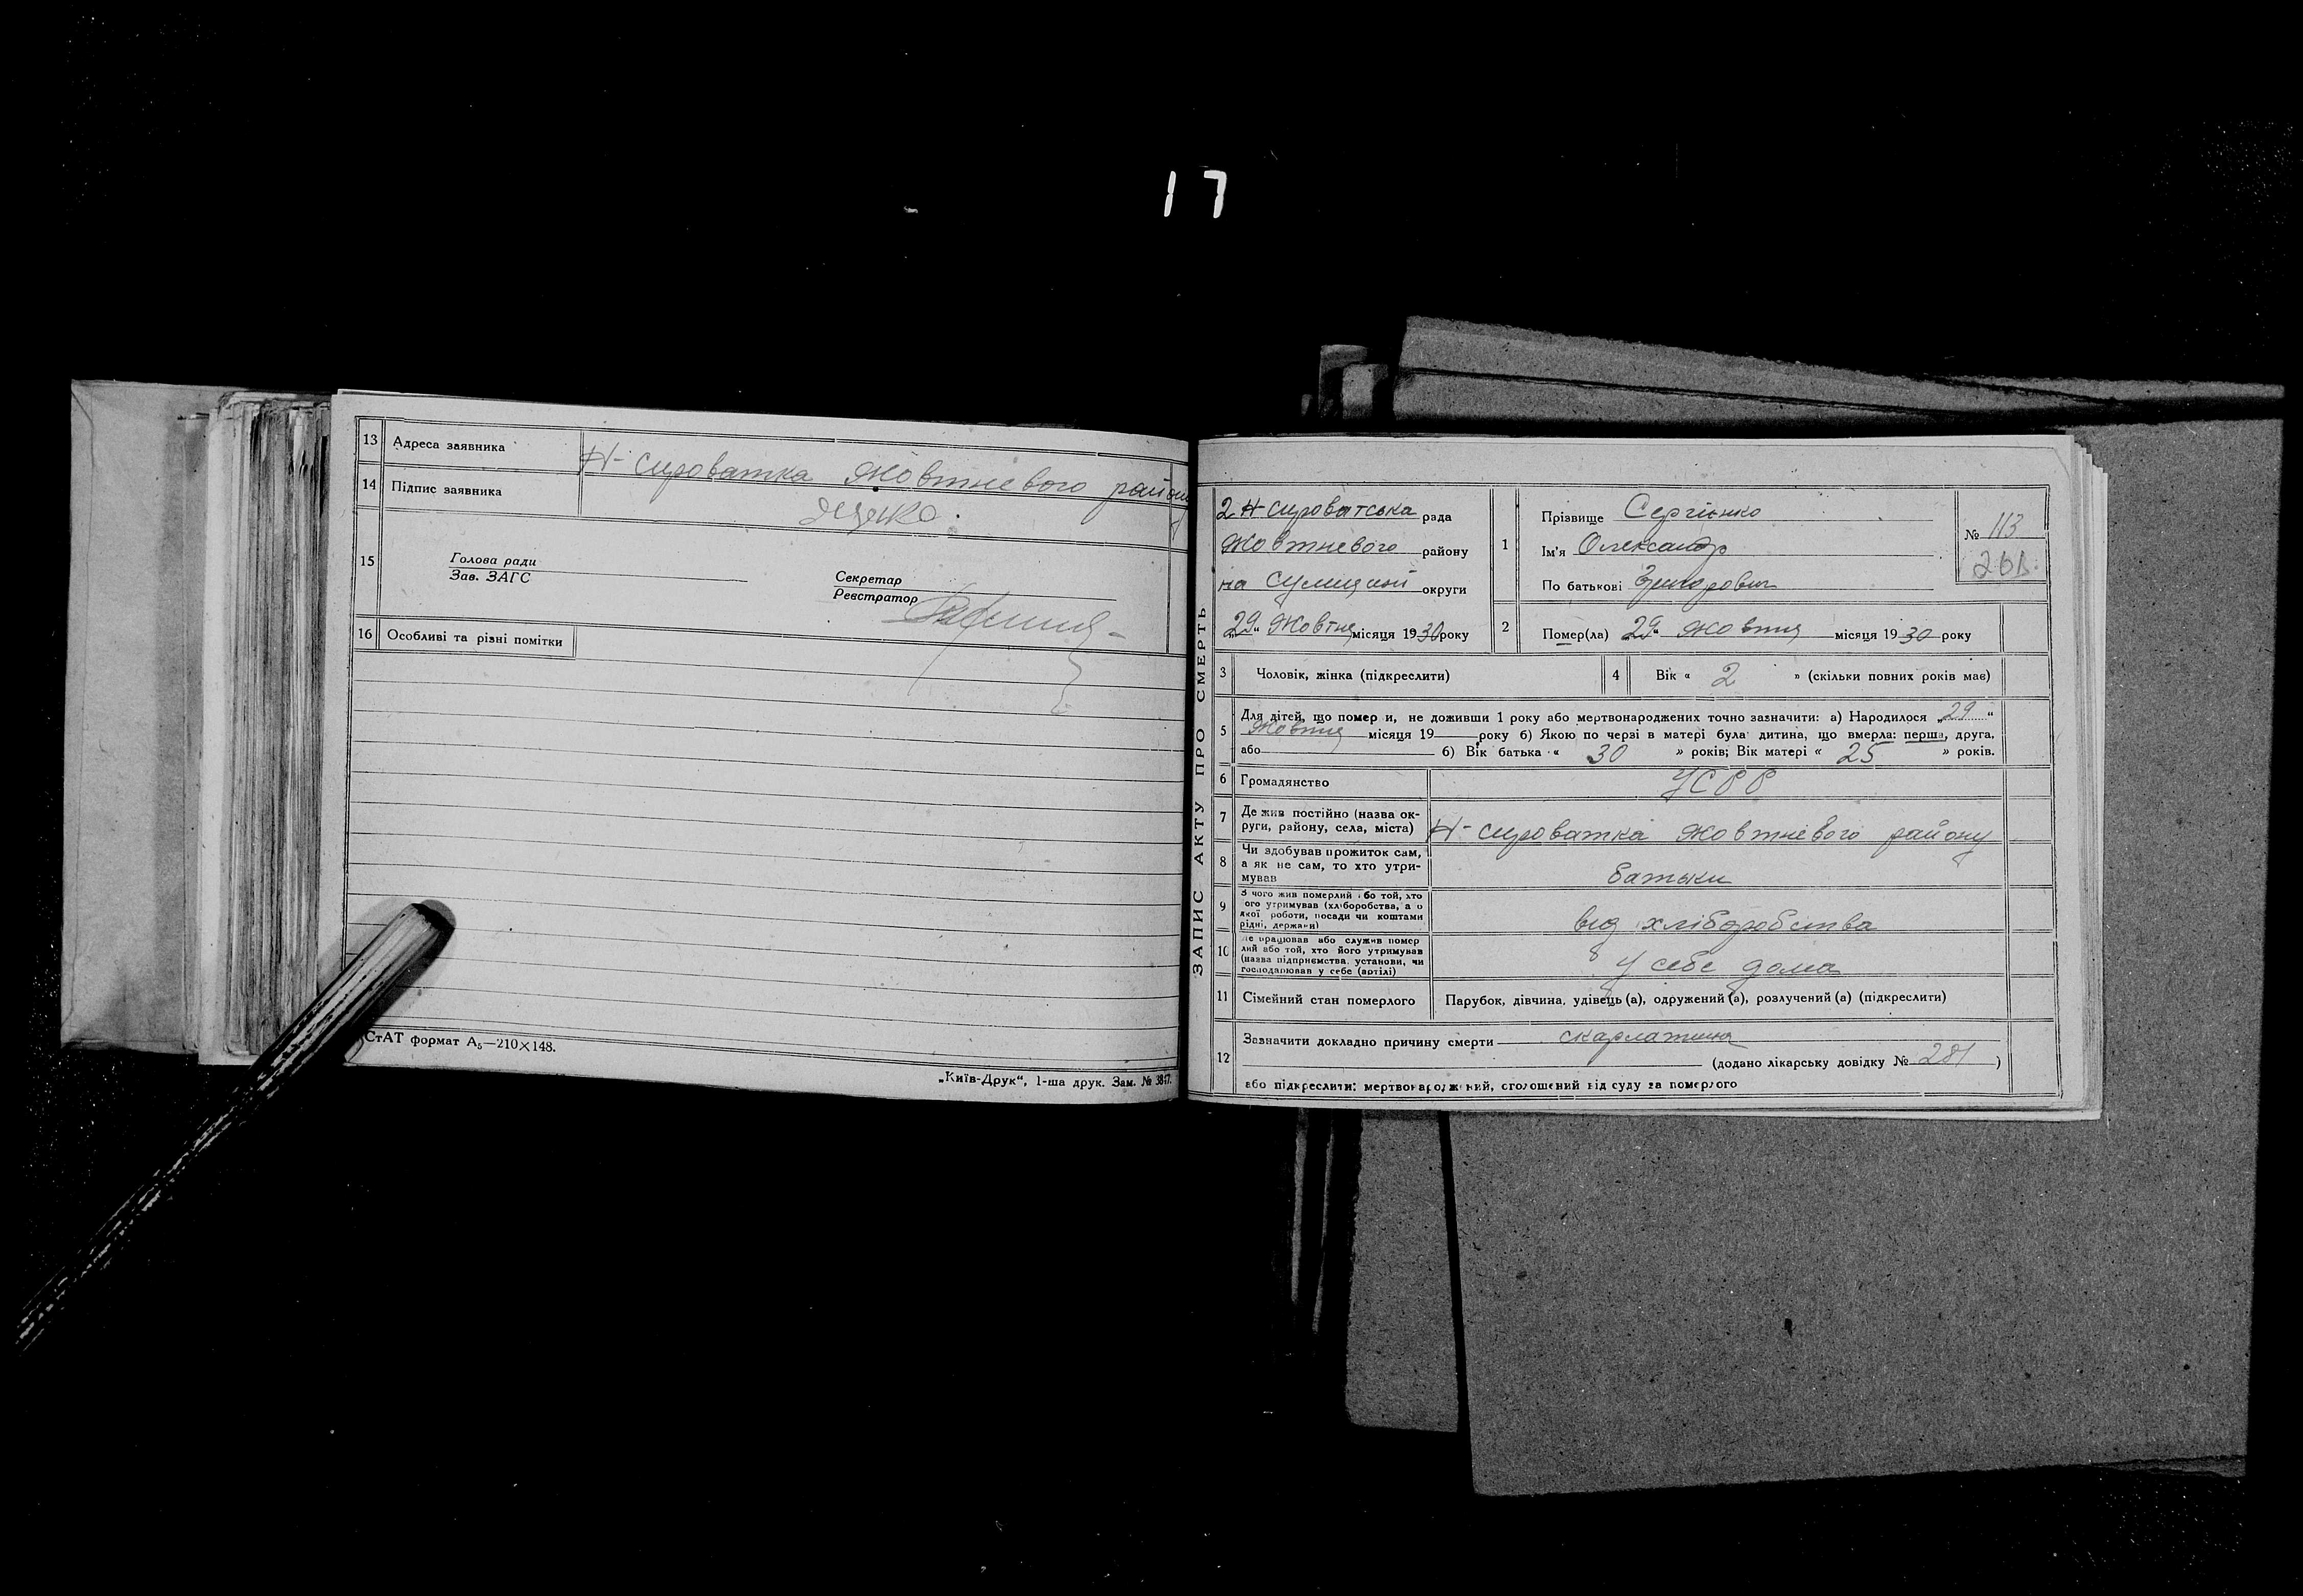 17
13 Адреса заявника Н-сироватка Жовтневого району
14 Підпис заявника
15
Голова ради
Зав. ЗАГС
Секретар
Реєстратор
16 Особливі та різні помітки
СтАТ формат А₅—210×148.
„Київ-Друк“, 1-ша друк. Зам. № 3847.
ЗАПИС АКТУ ПРО СМЕРТЬ
2 Н-сироватська рада
Жовтневого району
на Сумщині округи
29 „ Жовтня місяця 1930 року
1
Прізвище Сергієнко
Ім'я Олександр
По батькові
№ 113
2
Помер(ла) 29 „ Жовтня місяця 1930 року
3 Чоловік, жінка (підкреслити)
4 Вік « 2 » (скільки повних років має)
5 Для дітей, що померли, не доживши 1 року або мертвонароджених точно зазначити: а) Народилося „29“
Жовтня місяця 19 року б) Якою по черзі в матері була дитина, що вмерла: перша, друга,
або б) Вік батька « 30 » років; Вік матері « 25 » років.
6 Громадянство УСРР
7 Де жив постійно (назва ок-
руги, району, села, міста) Н-сироватка Жовтневого району
8 Чи здобував прожиток сам,
а як не сам, то хто утри-
мував батьки
9 З чого жив померлий або той, хто
його утримував (хліборобства, а о
якої роботи, посади чи коштами
рідні, держави) від хліборобства
10 Де працював або служив помер
лий або той, хто його утримував
(назва підприємства, установи, чи
господарював у себе (артілі) у себе дома
11 Сімейний стан померлого Парубок, дівчина, удівець (а), одружений (а), розлучений (а) (підкреслити)
12 Зазначити докладно причину смерти скарлатина
(додано лікарську довідку № 281 )
або підкреслити: мертвонароджений, оголошений від суду за померлого